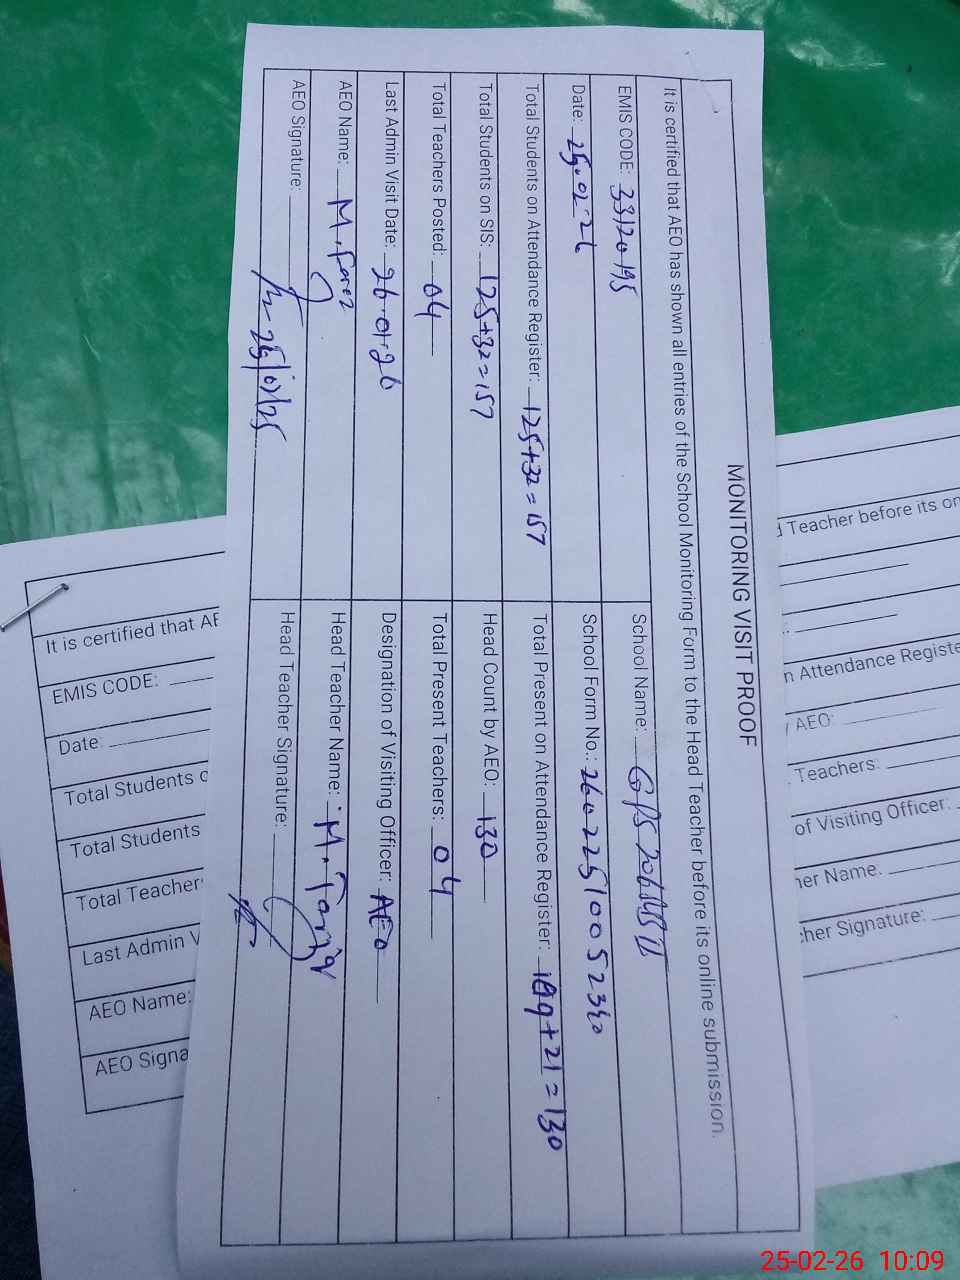 MONITORING VISIT PROOF
It is certified that AEO has shown all entries of the School Monitoring Form to the Head Teacher before its online submission.
EMIS CODE: 33120195
School Name: GPS
Date: 25.02.26
School Form No.: 26022510052340
Total Students on Attendance Register: 125+32=157
Total Present on Attendance Register: 109+21=130
Total Students on SIS: 125+32=157
Head Count by AEO: 130
Total Teachers Posted: 04
Total Present Teachers: 04
Last Admin Visit Date: 26.01.26
Designation of Visiting Officer: AEO
AEO Name: M.
Head Teacher Name: M. Tariq
AEO Signature:
Head Teacher Signature:
It is certified that AE
EMIS CODE:
Date:
Total Students o
Total Students
Total Teacher
Last Admin V
AEO Name:
AEO Signa
d Teacher before its on
n Attendance Registe
y AEO:
Teachers:
of Visiting Officer:
her Name:
cher Signature:
25-02-26 10:09